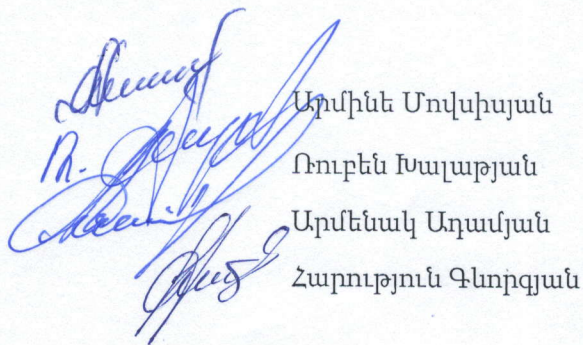 Արմինե Մովսիսյան
Ռուբեն Խալաթյան
Արմենակ Ադամյան
Հարություն Գևորգյան